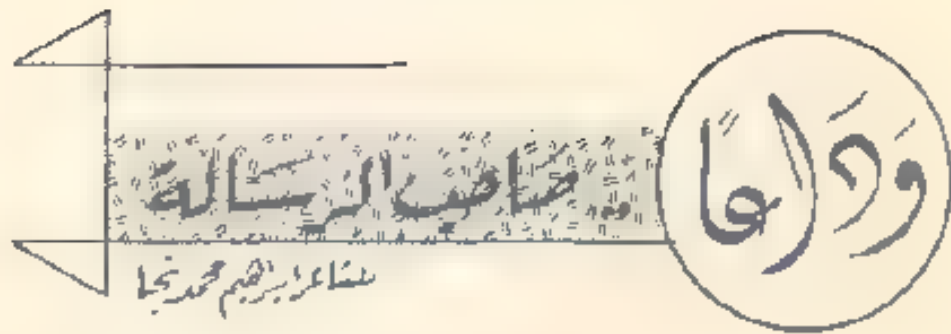 وَدَاعًا .. صَاحِبَ الرسَالة
للشاعر ابراهيم محمد نجا